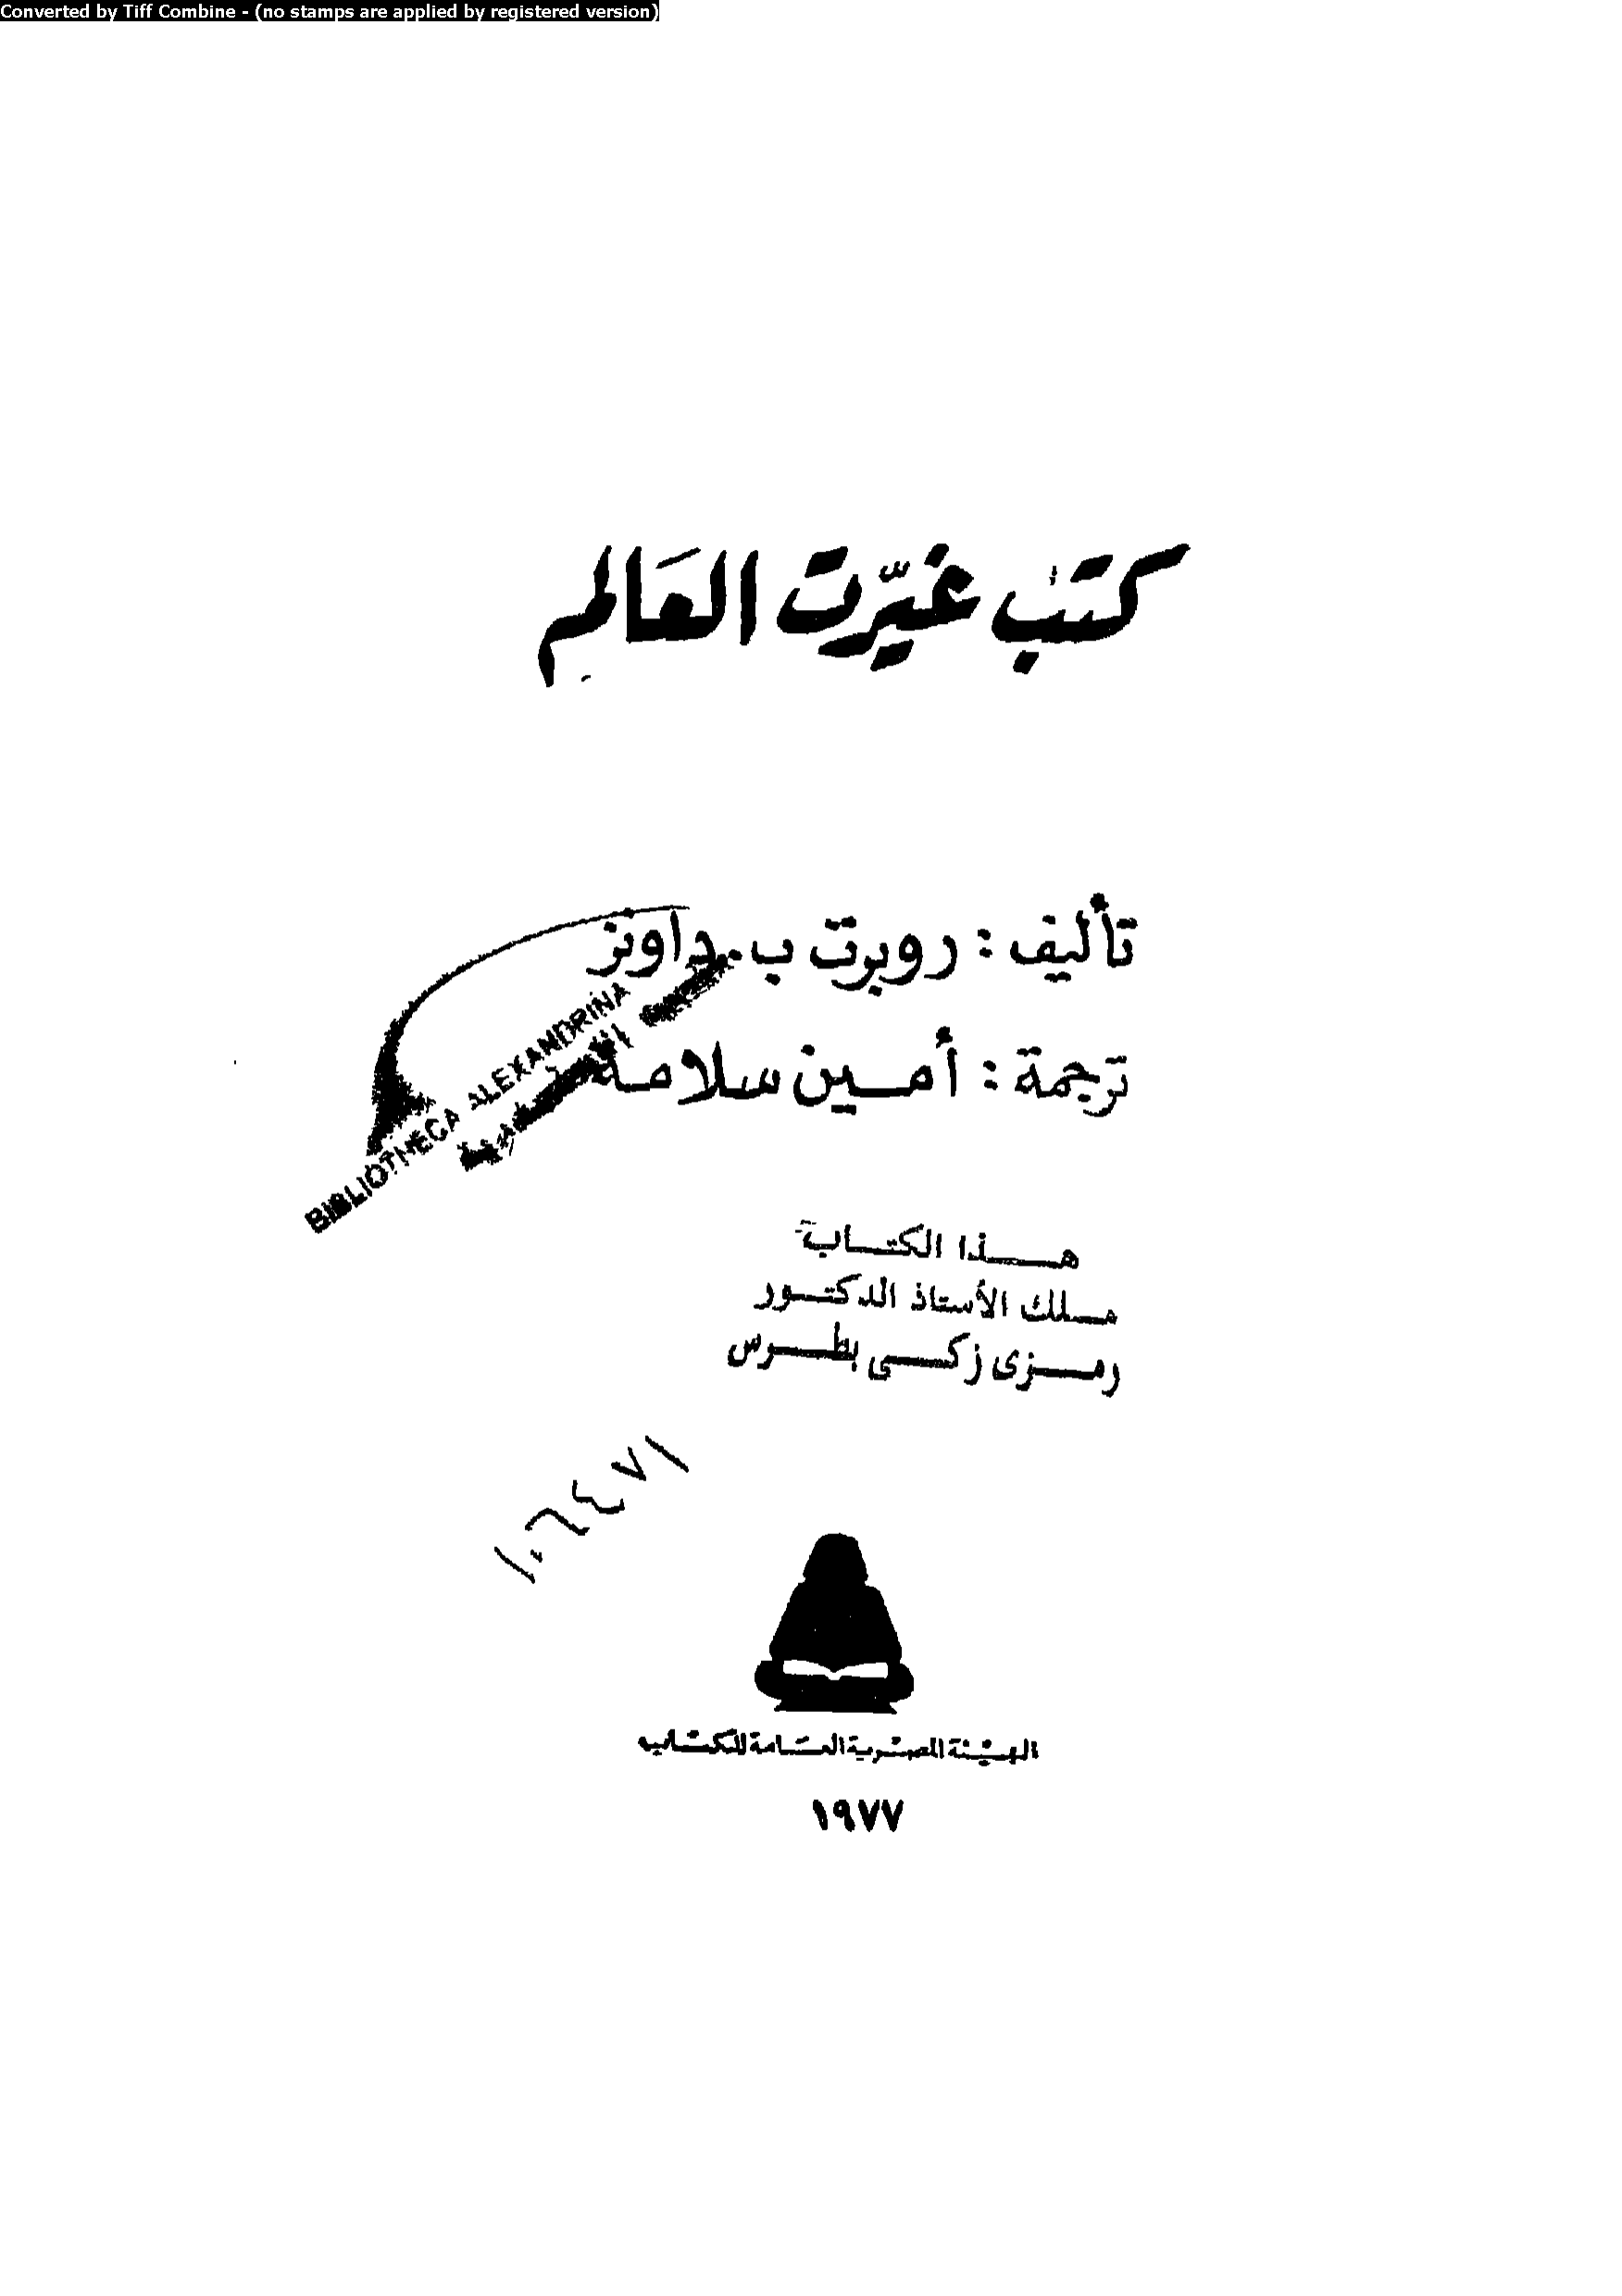 Converted by Tiff Combine - (no stamps are applied by registered version)
كتب غيّرت العالم
تأليف : روبرت ب . داونز
ترجمة : أمين سلامة
BIBLIOTHECA ALEXANDRINA
هذا الكتاب
ملك الأستاذ الدكتور
رمزى زكى بطرس
١٠٦٤٧١
الهيئة المصرية العامة للكتاب
١٩٧٧